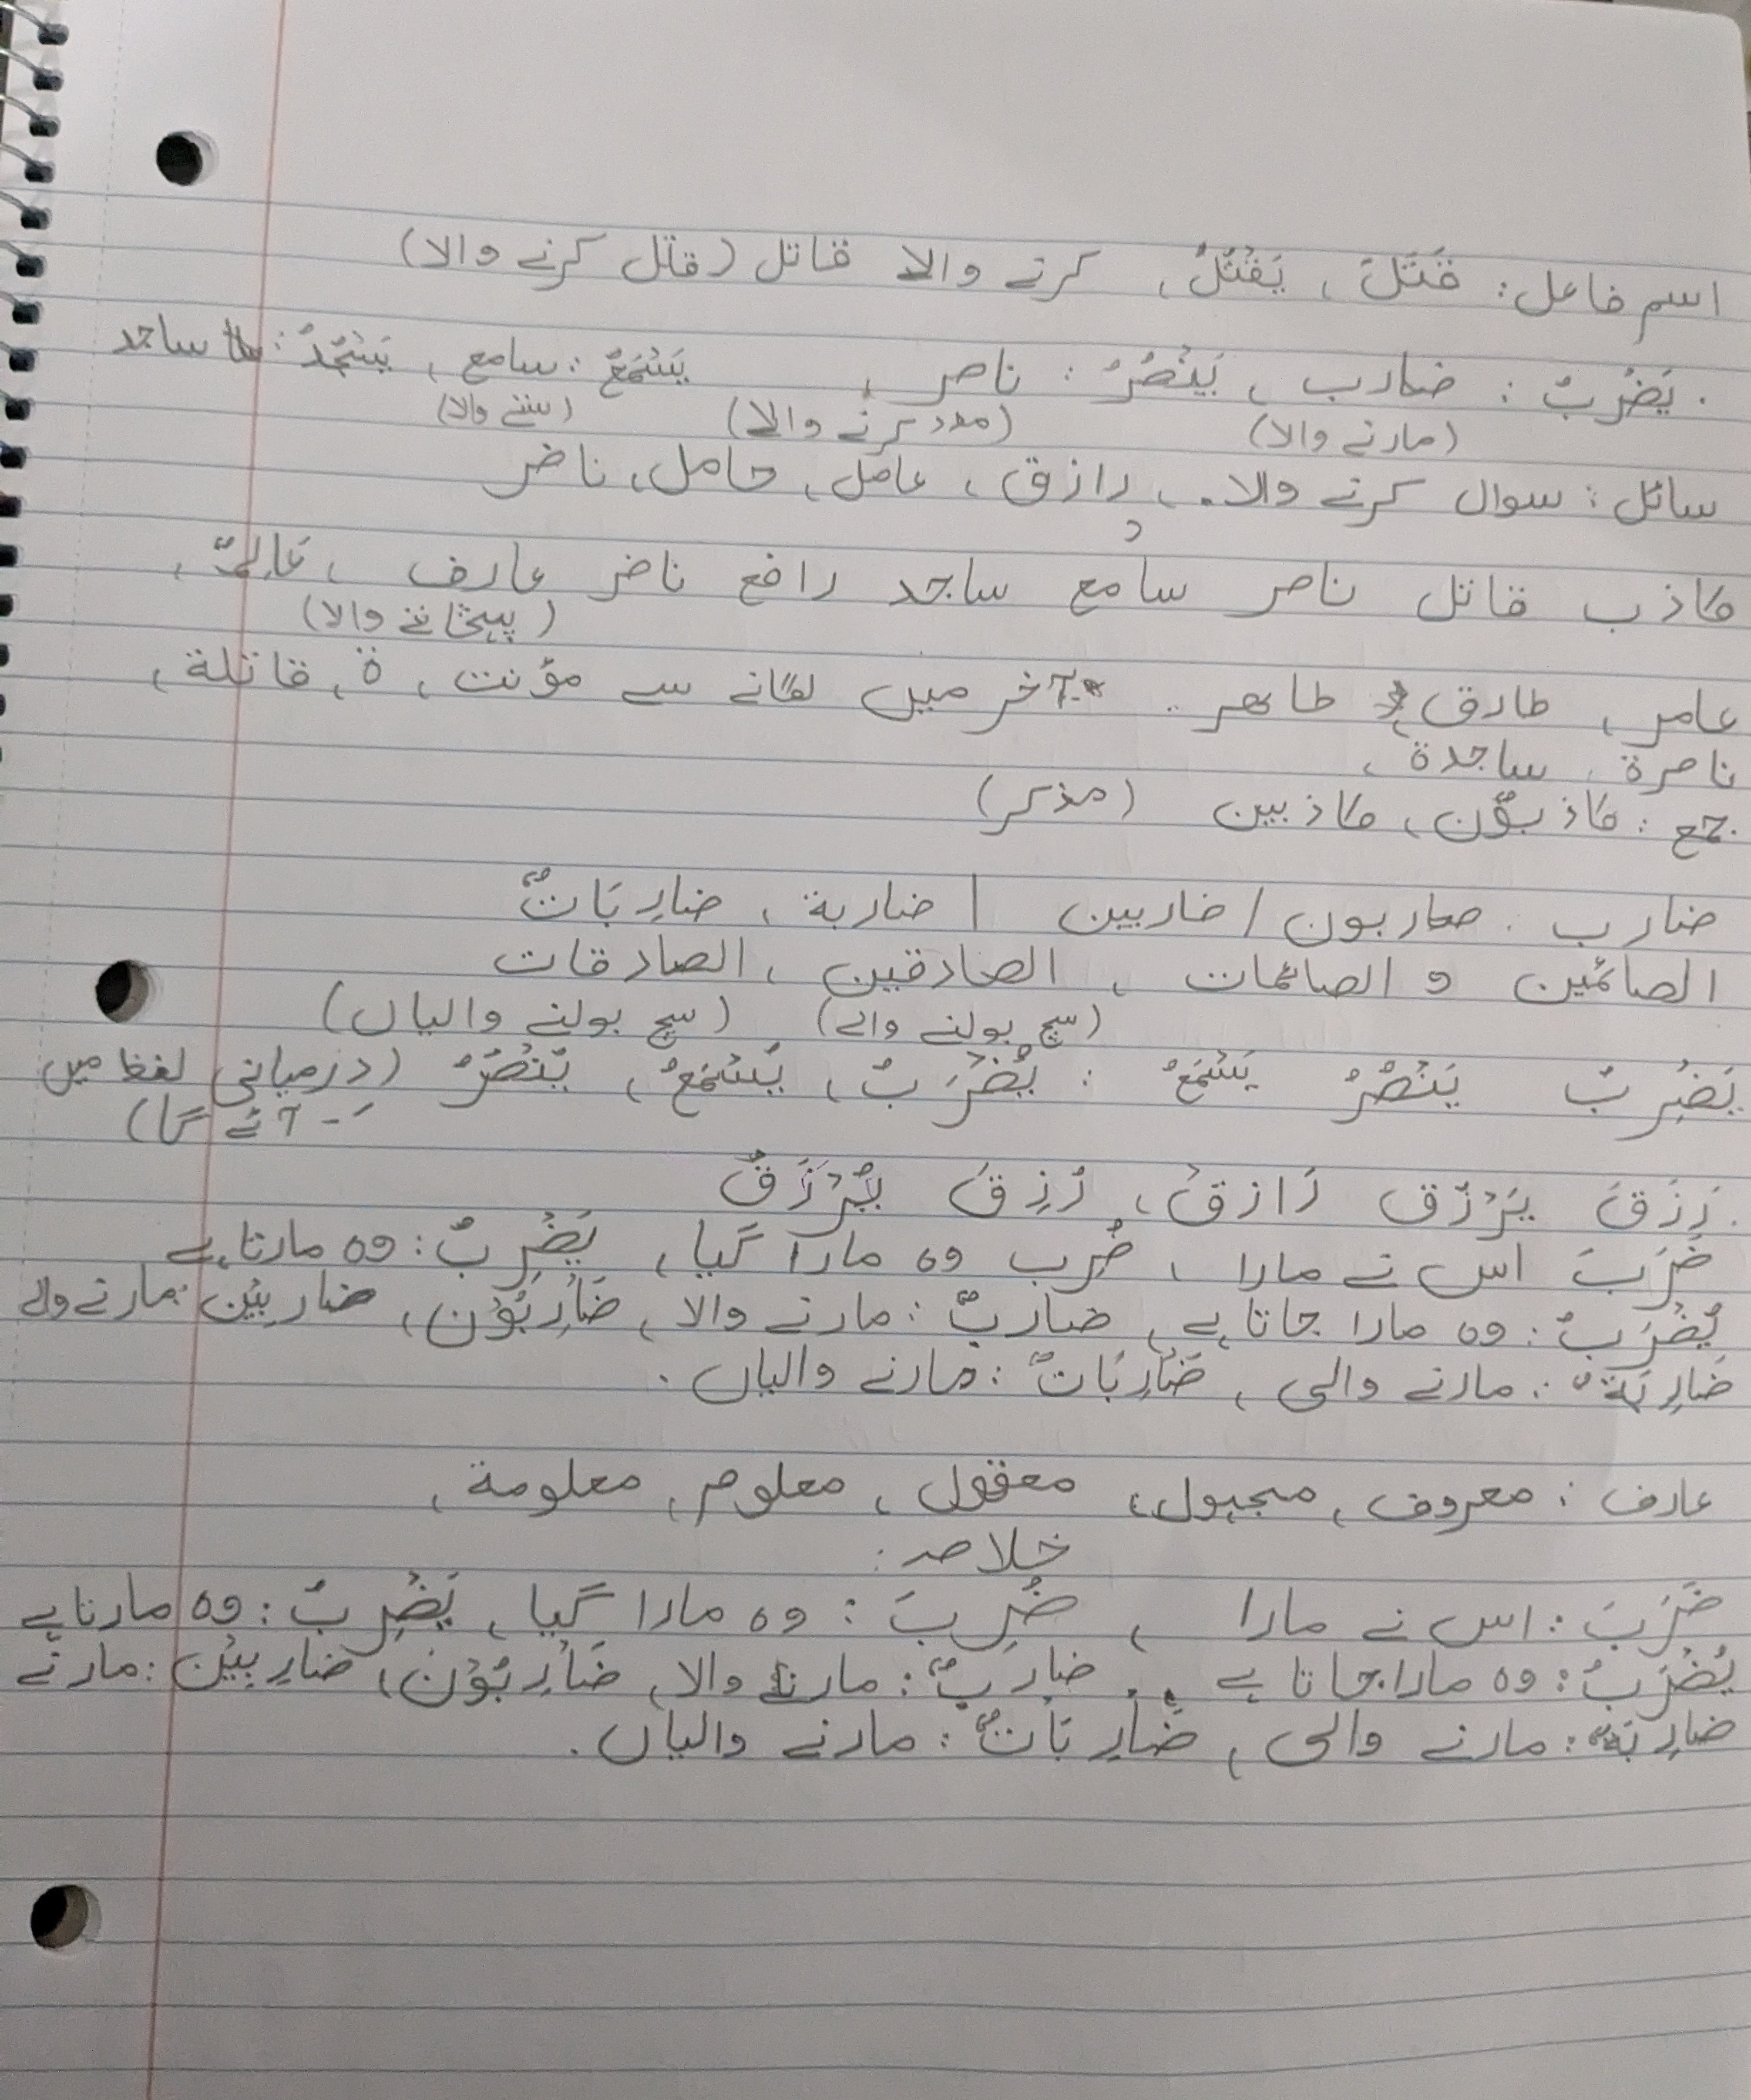 اسم فاعل: قَتَلَ ، يَقْتُلُ، کرنے والا قاتل (قتل کرنے والا)
يَضْرِبُ : ضارب ، يَنْصُرُ : ناصر ، يَسْمَعُ : سامع ، يَسْجُدُ : ساجد
(مارنے والا) (مدد کرنے والا) (سننے والا)
سائل : سوال کرنے والا ۔ ، رازق ، عامل ، حامل ، ناضر
کاذب قاتل ناصر سامع ساجد رافع ناضر عارف ، عَالِمٌ ،
(پہچاننے والا)
عامر ، طارق ، طاھر ۔ آخر میں لگانے سے مؤنث ، ة ، قاتلة ،
ناصرة ، ساجدة ،
جمع : کاذبوْن ، کاذبین (مذکر)
ضارب ۔ ضاربون / ضاربین | ضاربة ، ضارِبَاتٌ
الصائمین و الصائمات ، الصادقین ، الصادقات
(سچ بولنے والے) (سچ بولنے والیاں)
يَضْرِبُ يَنْصُرُ يَسْمَعُ : يُضْرَبُ ، يُسْمَعُ ، يُنْصَرُ (درمیانی لفظ میں
َ - آئے گا)
رَزَقَ يَرْزُق رَازق ، رُزِقَ يُرْزَقُ
ضَرَبَ اس نے مارا ، ضُرِب وہ مارا گیا ، يَضْرِبُ : وہ مارتا ہے
يُضْرَبُ : وہ مارا جاتا ہے ، ضاربٌ : مارنے والا ، ضَارِبُوْن ، ضارِبِيْن : مارنے والے
ضَارِبَةٌ : مارنے والی ، ضَارِبَاتٌ : مارنے والیاں ۔
عارف : معروف ، مجہول ، معقول ، معلوم ، معلومة ،
خلاصہ :
ضَرَبَ : اس نے مارا ، ضُرِبَ : وہ مارا گیا ، يَضْرِبُ : وہ مارتا ہے
يُضْرَبُ : وہ مارا جاتا ہے ، ضارِبٌ : مارنے والا ، ضَارِبُوْنَ ، ضارِبِيْن : مارنے
ضارِبَة : مارنے والی ، ضَارِبَاتٌ : مارنے والیاں ۔